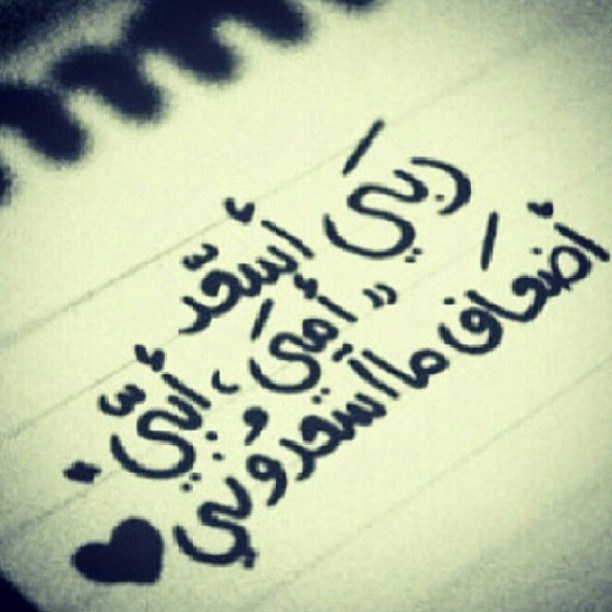 ربي أسعد
" أمي ، أبي "
أضعاف ما أسعدوني ♥